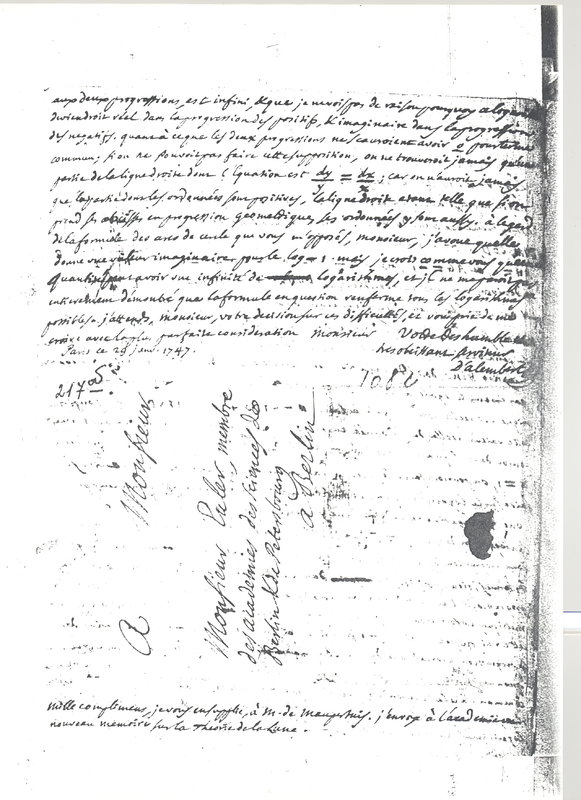 aux deux progressions, est infini, & que je ne vois pas de raison pourquoy ce logar
deviendroit réel dans la progression des positifs, & imaginaire dans la progression
des negatifs. quant à ce que les deux progressions ne scauroient avoir o pour terme
commun; si on ne pouvoit pas faire cette supposition, on ne trouveroit jamais qu'une
partie de la ligne droite dont l'Equation est dy/y = dx/x; car on n'auroit jamais
que la partie dont les ordonnées sont positives, la ligne droite etant telle que si on
prend ses abscisses en progression Geometrique, ses ordonnées y sont aussi. à l'egard
de la formule des arcs de cercle que vous m'opposés, monsieur, j'avoue qu'elle
donne une valeur imaginaire pour le log - 1 mais je crois comme vous qu'une
Quantité peut avoir une infinité de logarithmes, et il ne me paroit pas
entierement démontré que la formule en question renferme tous les logarithmes
possibles. j'attends, monsieur, votre decision sur ces difficultés, et vous prie de me
croire avec la plus parfaite consideration Monsieur Votre tres humble et
tres obeissant serviteur
Paris ce 29 janv. 1747.
D'alembert
217
1082
A Monsieur
Monsieur Euler, membre
des academies des sciences de
Berlin & de Petersbourg
à Berlin
mille complimens, je vous en supplie, à m. de Maupertuis. j'envoye à l'academie un
nouveau memoire sur la Theorie de la Lune.